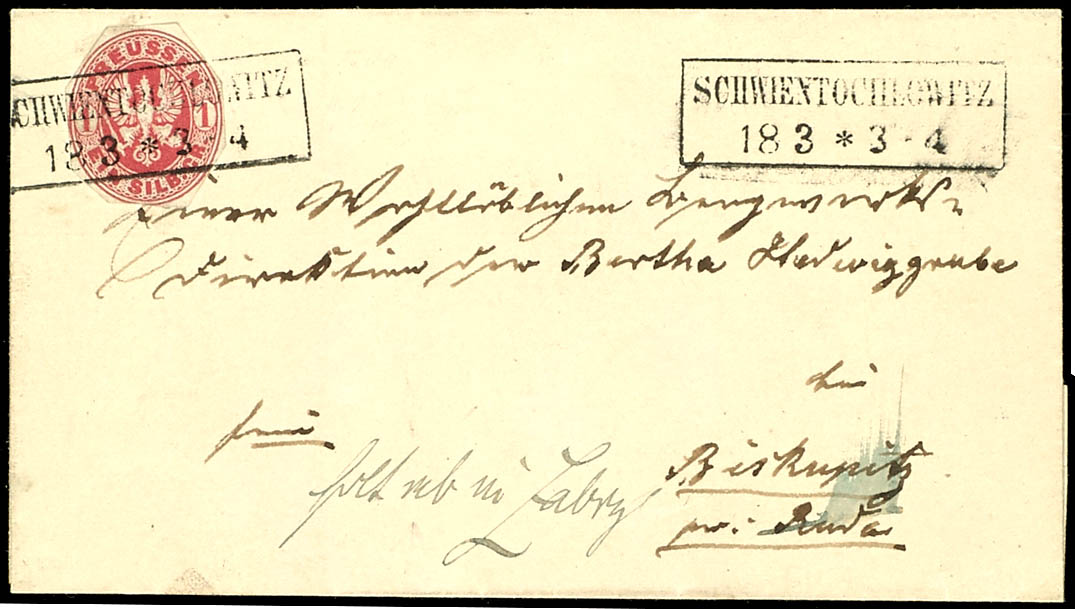 PREUSSEN
1 1
EIN SILB. GR.
SCHWIENTOCHLOWITZ
18 3 * 3-4
SCHWIENTOCHLOWITZ
18 3 * 3-4
Einer Wohllöblichen Bergwerks-
Direktion der Bertha Hedwiggrube
bei
frei
Biskupitz
in Zabrze
pr: Ruda